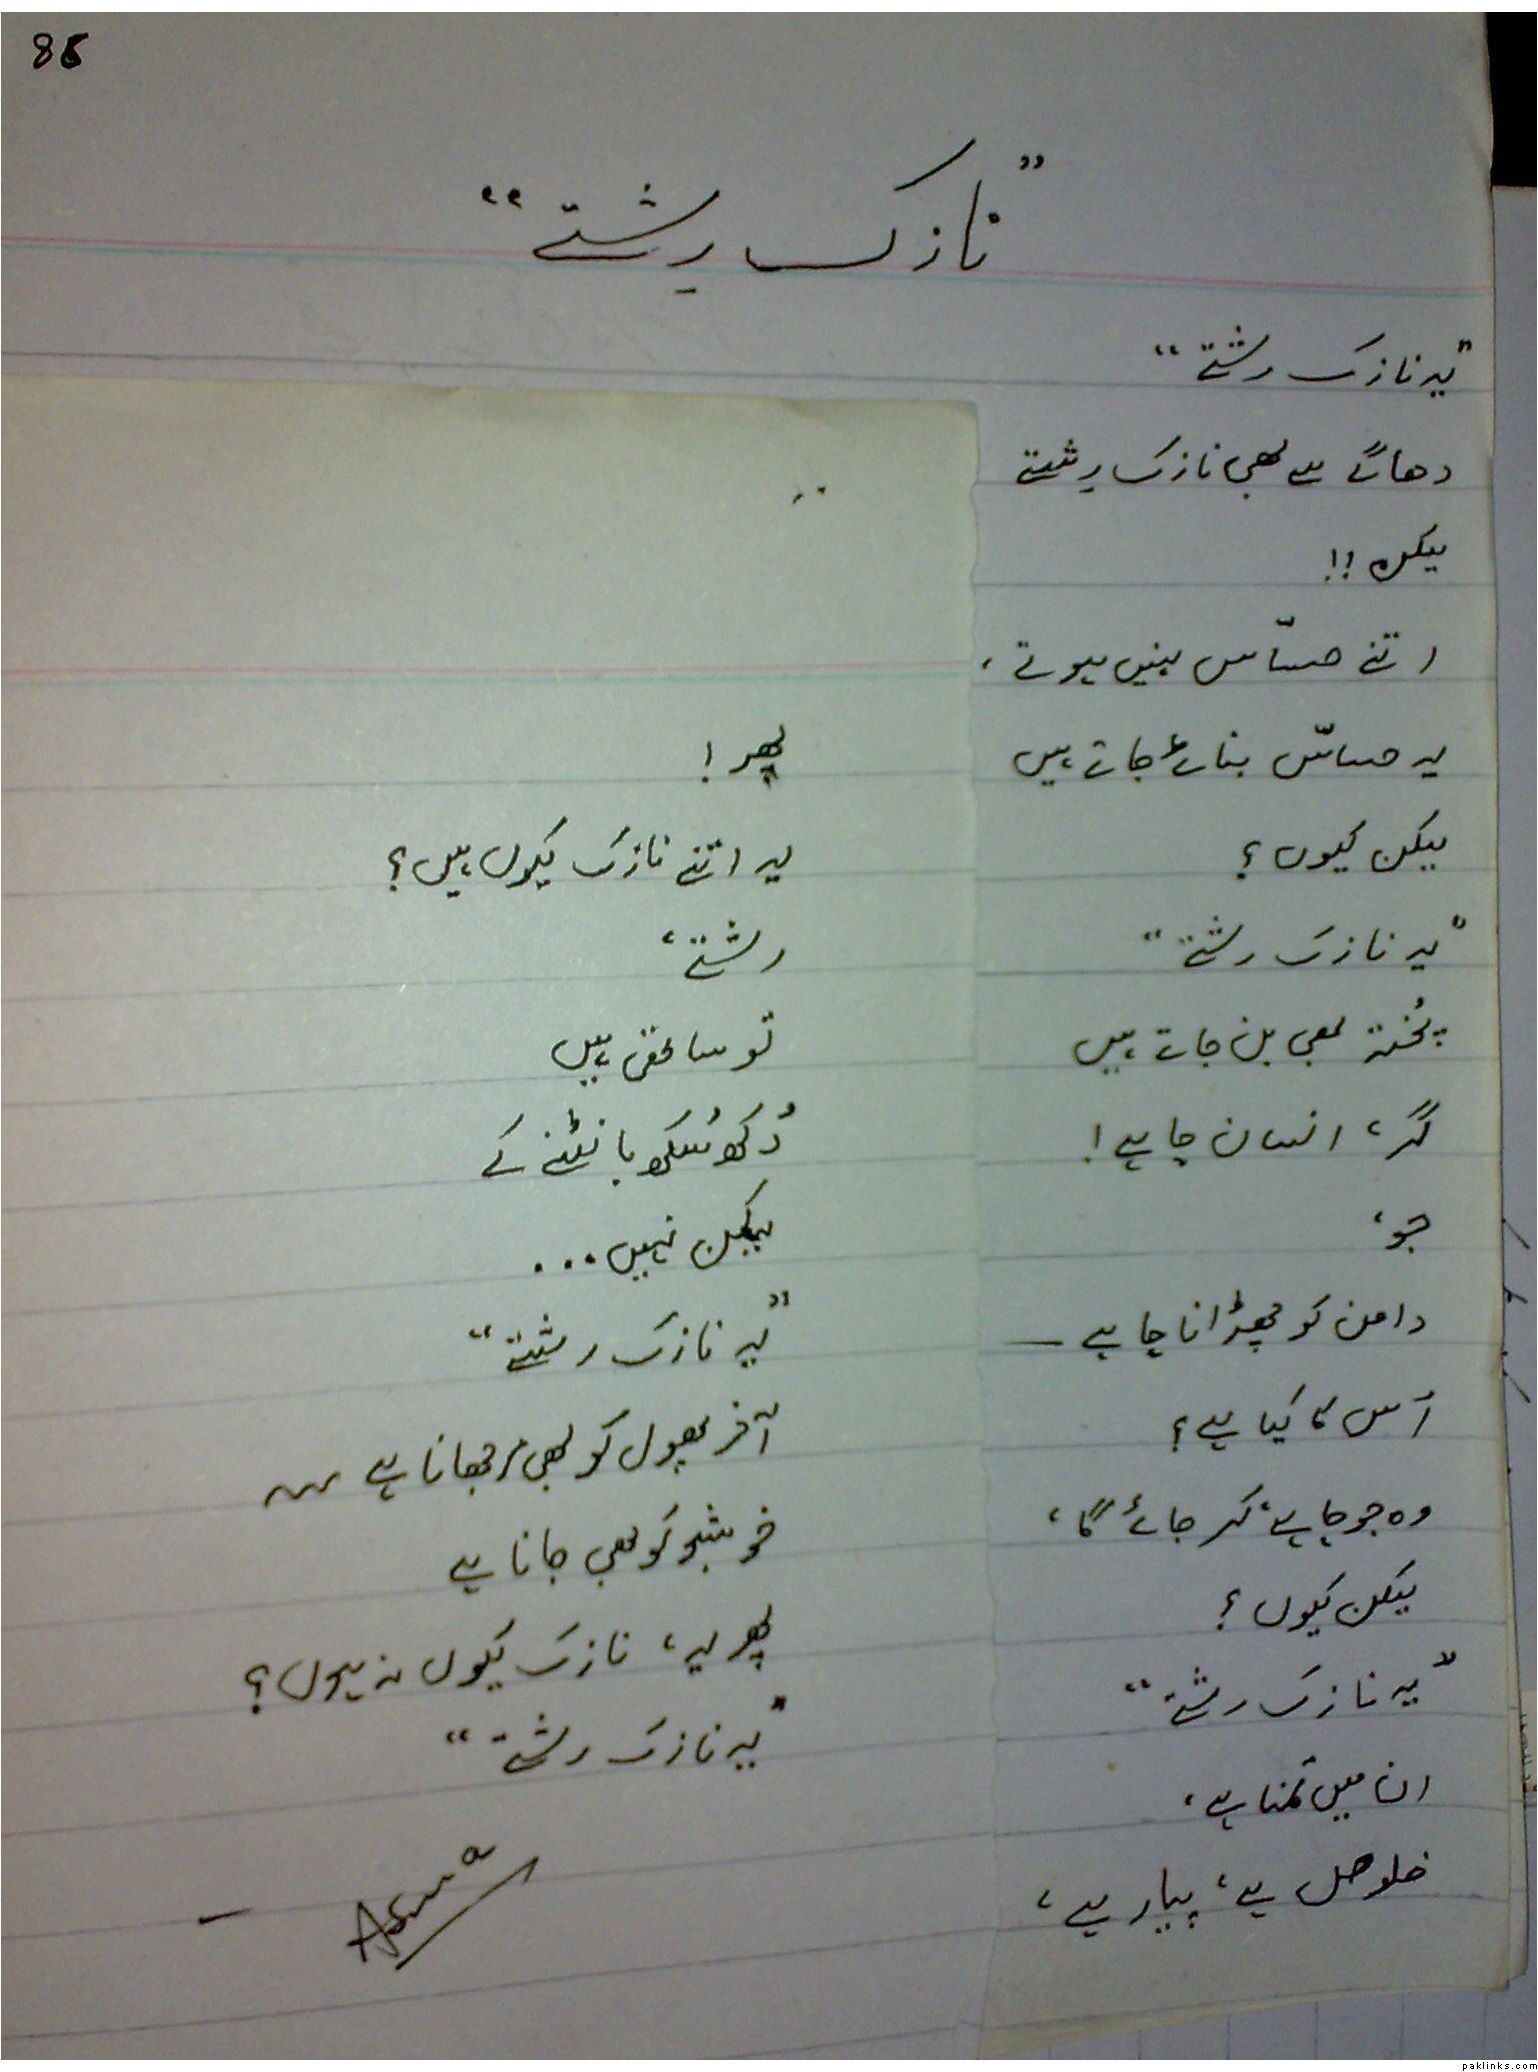 86
”نازک رشتے“
”یہ نازک رشتے“
دھاگے سے بھی نازک رشتے
لیکن !!
اتنے حسّاس نہیں ہوتے ،
یہ حساسّ بنائے جاتے ہیں
لیکن کیوں ؟
”یہ نازک رشتے“
پُختہ بھی بن جاتے ہیں
گر ، انسان چاہے !
جو ،
دامن کو چھڑانا چاہے —
اُس کا کیا ہے ؟
وہ جو چاہے ، کر جائے گا ،
لیکن کیوں ؟
”یہ نازک رشتے“
ان میں تمنا ہے ،
خلوص ہے ، پیار ہے ،
پھر !
یہ اتنے نازک کیوں ہیں ؟
رشتے ،
تو ساتھی ہیں
دُکھ سُکھ بانٹنے کے
لیکن نہیں ...
”یہ نازک رشتے“
آخر پھول کو بھی مرجھانا ہے
خوشبو کو بھی جانا ہے
پھر یہ ، نازک کیوں نہ ہوں ؟
”یہ نازک رشتے“
Asma
paklinks.com